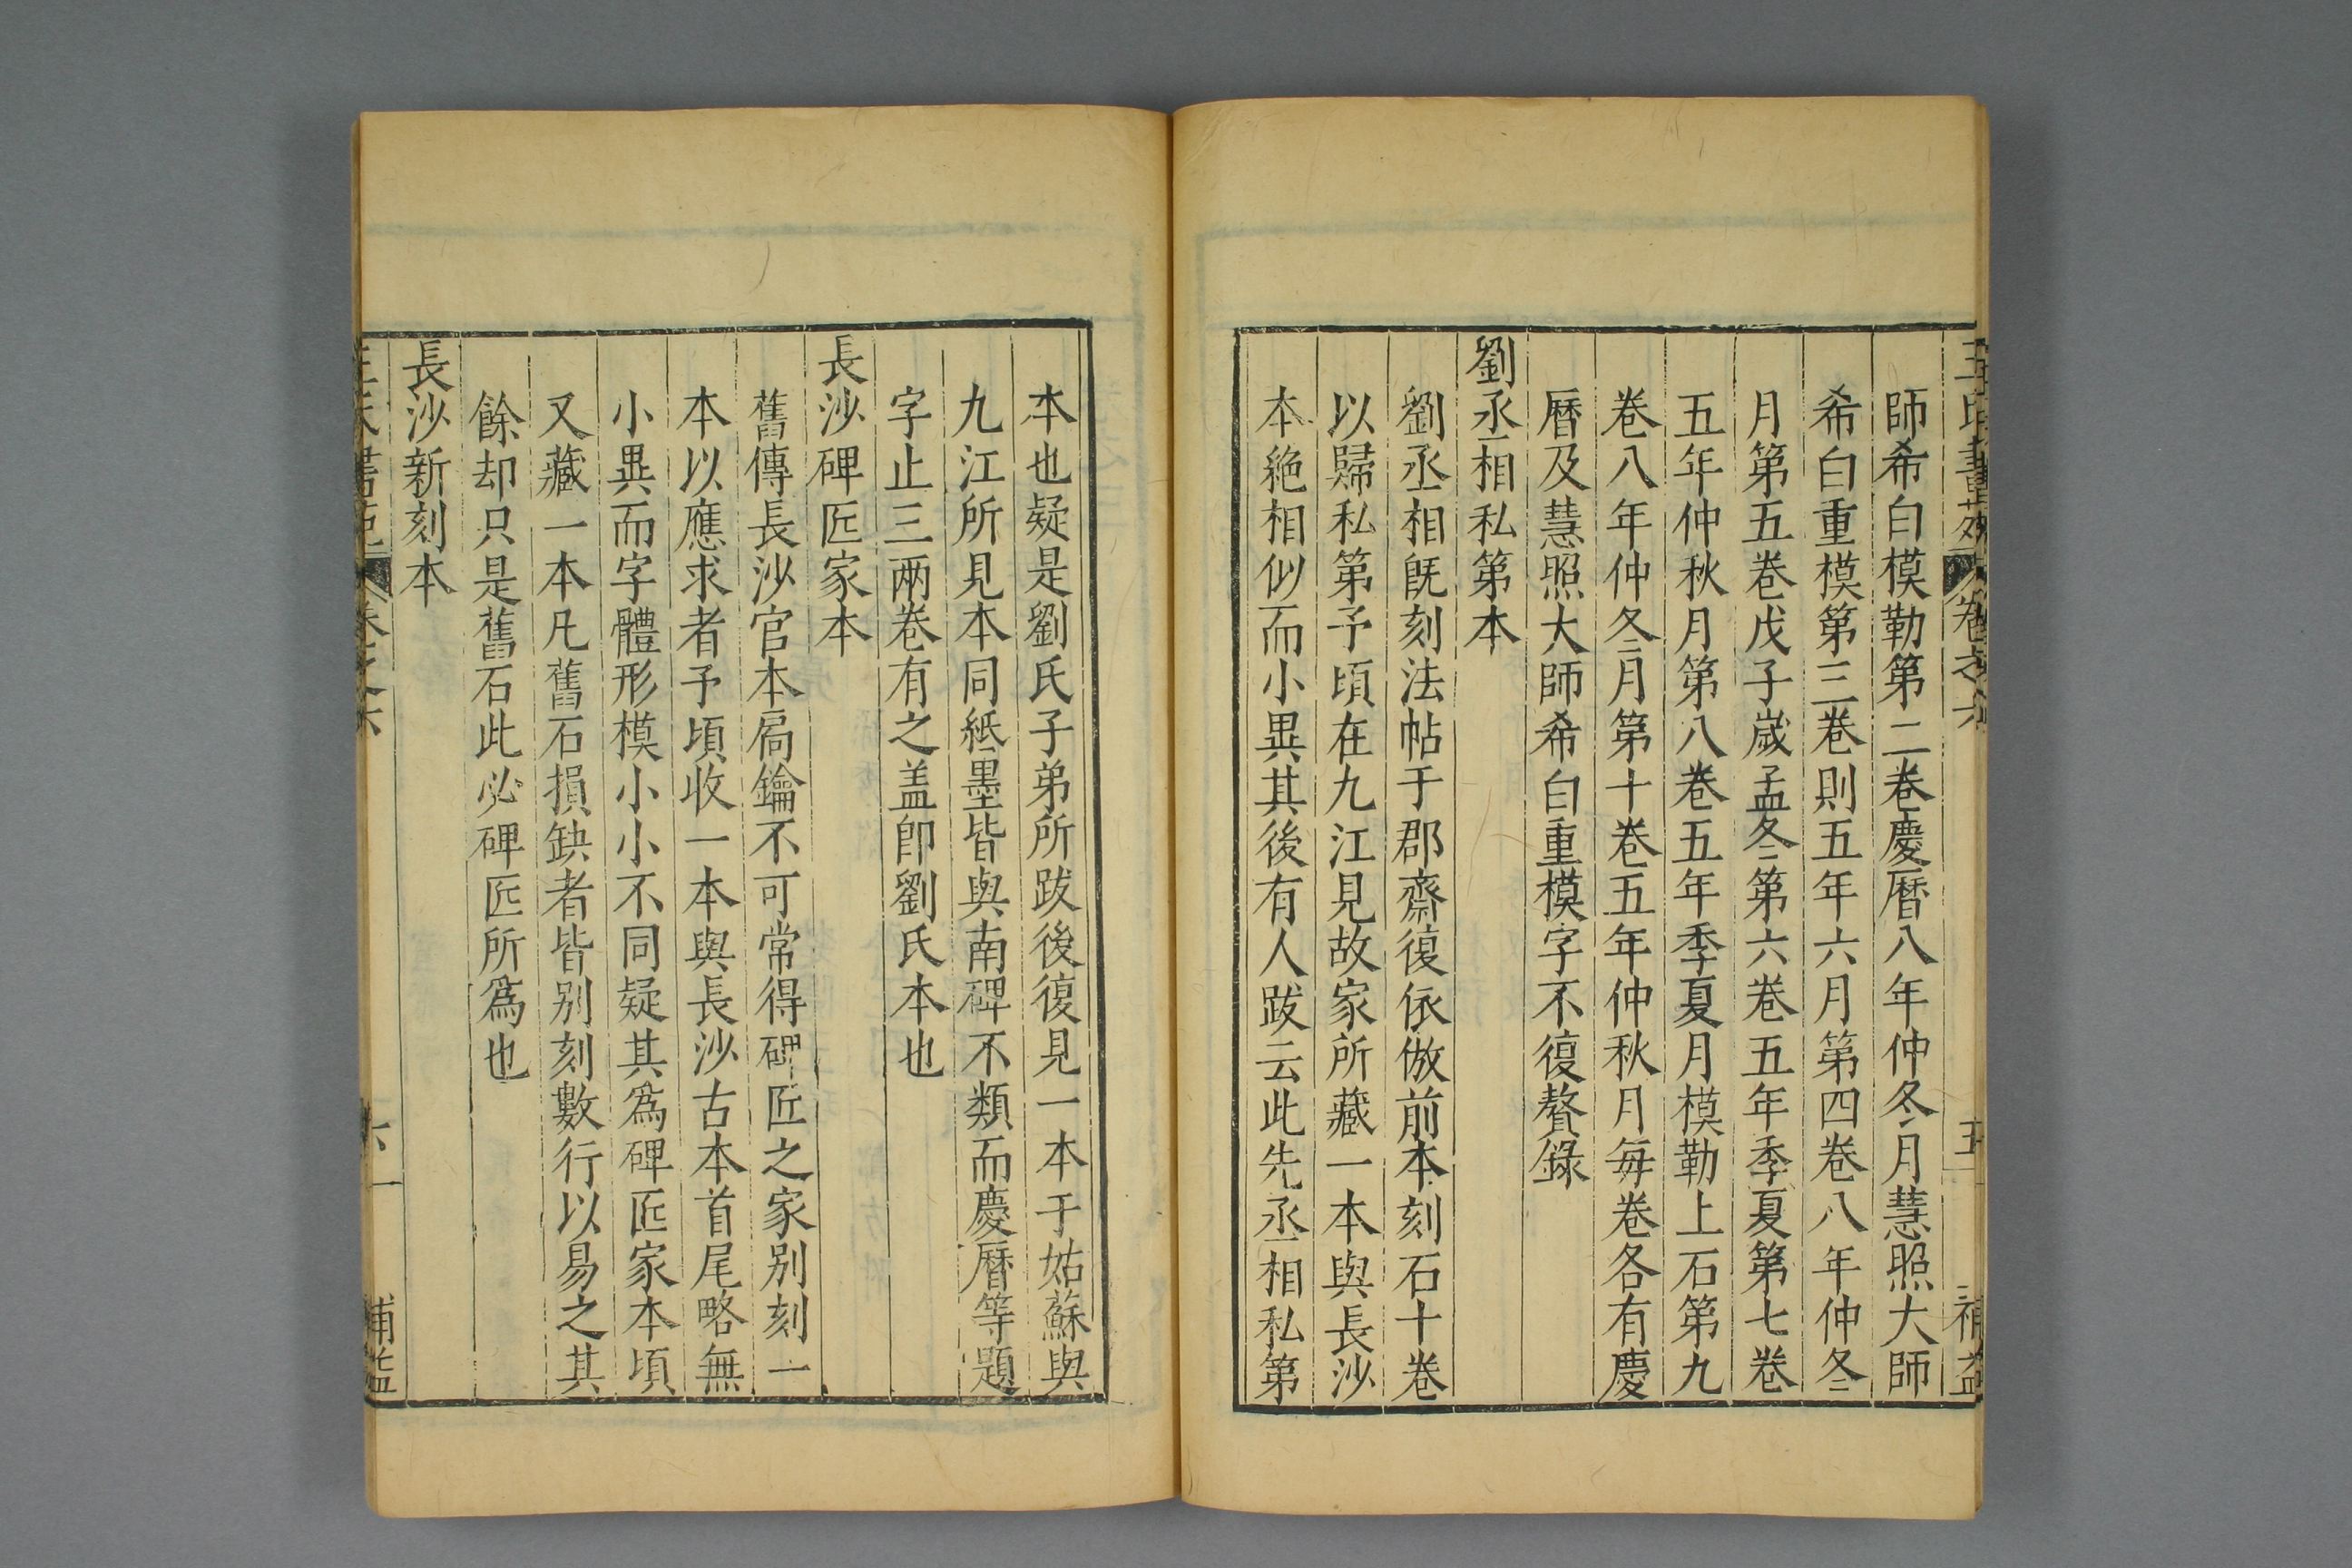 師希白模勒第二卷慶曆八年仲冬月慧照大師
希白重模第三卷則五年六月第四卷八年仲冬
月第五卷戊子嵗孟冬第六卷五年季夏第七卷
五年仲秋月第八卷五年季夏月模勒上石第九
卷八年仲冬月第十卷五年仲秋月每卷各有慶
曆及慧照大師希白重模字不復贅錄
劉丞相私第本
劉丞相旣刻法帖于郡齋復依倣前本刻石十卷
以歸私第予頃在九江見故家所藏一本與長沙
本絶相似而小異其後有人跋云此先丞相私第
本也疑是劉氏子弟所跋後復見一本于姑蘇與
九江所見本同紙墨皆與南碑不類而慶曆等題
字止三兩卷有之盖卽劉氏本也
長沙碑匠家本
舊傳長沙官本扃鑰不可常得碑匠之家别刻一
本以應求者予頃收一本與長沙古本首尾略無
小異而字體形模小小不同疑其爲碑匠家本頃
又藏一本凡舊石損缺者皆别刻數行以易之其
餘却只是舊石此必碑匠所爲也
長沙新刻本
卷之六
六
補益